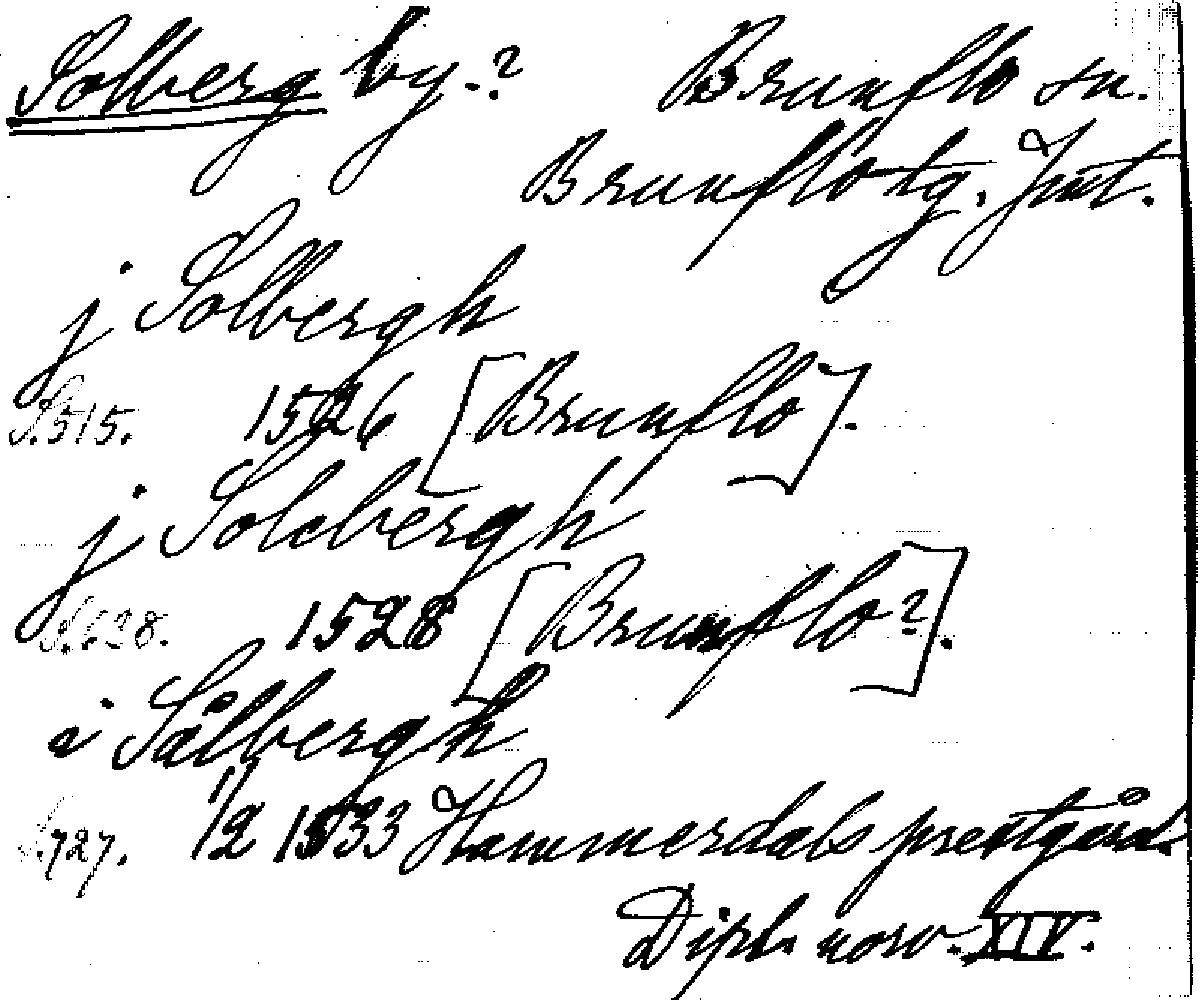 Solberg by.? Brunflo sn.
Brunflo tg. Jmt.
j Solbergh
S. 515. 1526 [Brunflo].
j Solebergh
S. 628. 1528 [Brunflo?].
i Sålbergh
S. 727. 1/2 1533 Hammerdals prestgård.
Dipl. norv. XIV.